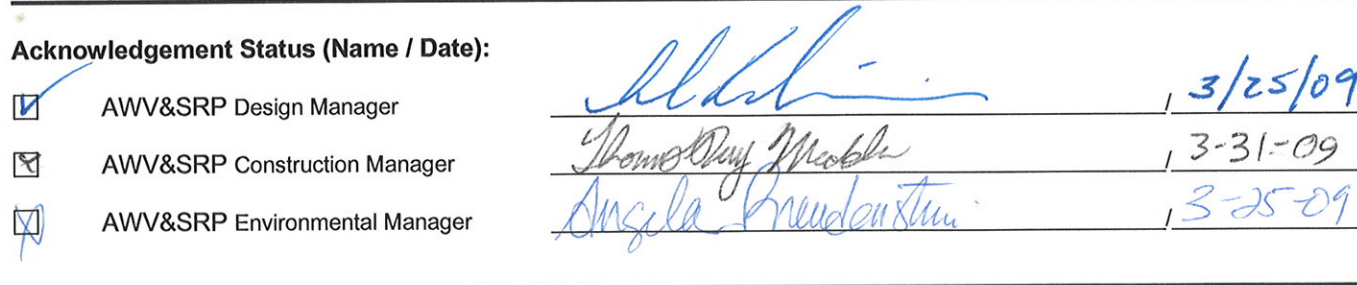 Acknowledgement Status (Name / Date):
AWV&SRP Design Manager , 3/25/09
AWV&SRP Construction Manager , 3-31-09
AWV&SRP Environmental Manager Angela , 3-25-09